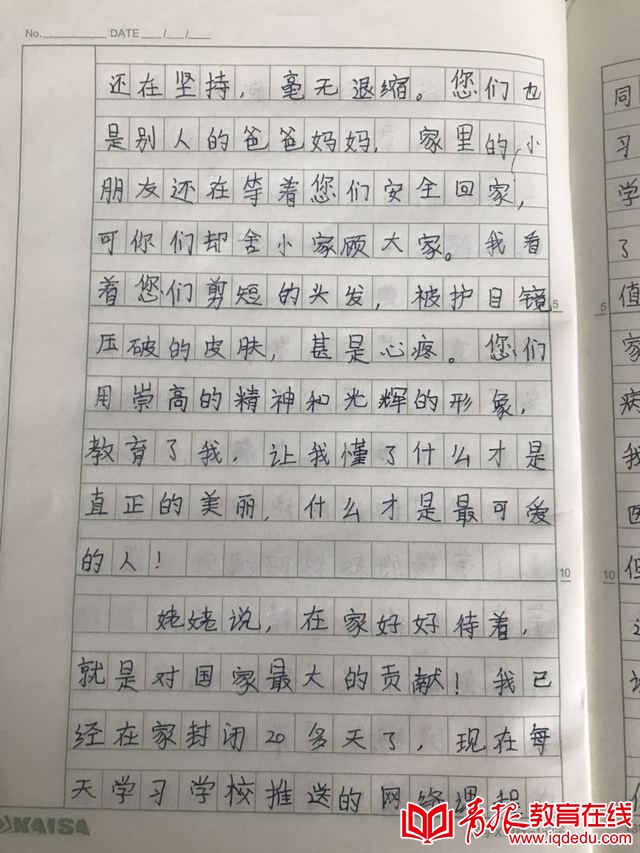 No. DATE / /
还在坚持，毫无退缩。您们也
是别人的爸爸妈妈，家里的小
朋友还在等着您们安全回家，
可你们却舍小家顾大家。我看
着您们剪短的头发，被护目镜
压破的皮肤，甚是心疼。您们
用崇高的精神和光辉的形象，
教育了我，让我懂了什么才是
真正的美丽，什么才是最可爱
的人！
姥姥说，在家好好待着，
就是对国家最大的贡献！我已
经在家封闭20多天了，现在每
天学习学校推送的网络课程
5
10
同
习
学
了
值
家
病
我
因
但
5
10
KAISA
青报教育在线
www.iqdedu.com